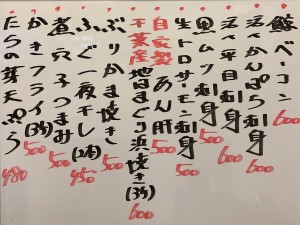 鯨ベーコン 600
活〆かんぱち刺身 600
活〆平目刺身 600
黒ムツ刺身 500
生トロサーモン刺身 500
自家製あん肝 500
千葉産地はまぐり浜焼き(3ケ) 600
ぶりかま焼き 500
ふぐ一夜干し(2本) 450
煮穴子つまみ 500
かきフライ(3ケ) 500
たらの芽天ぷら 480